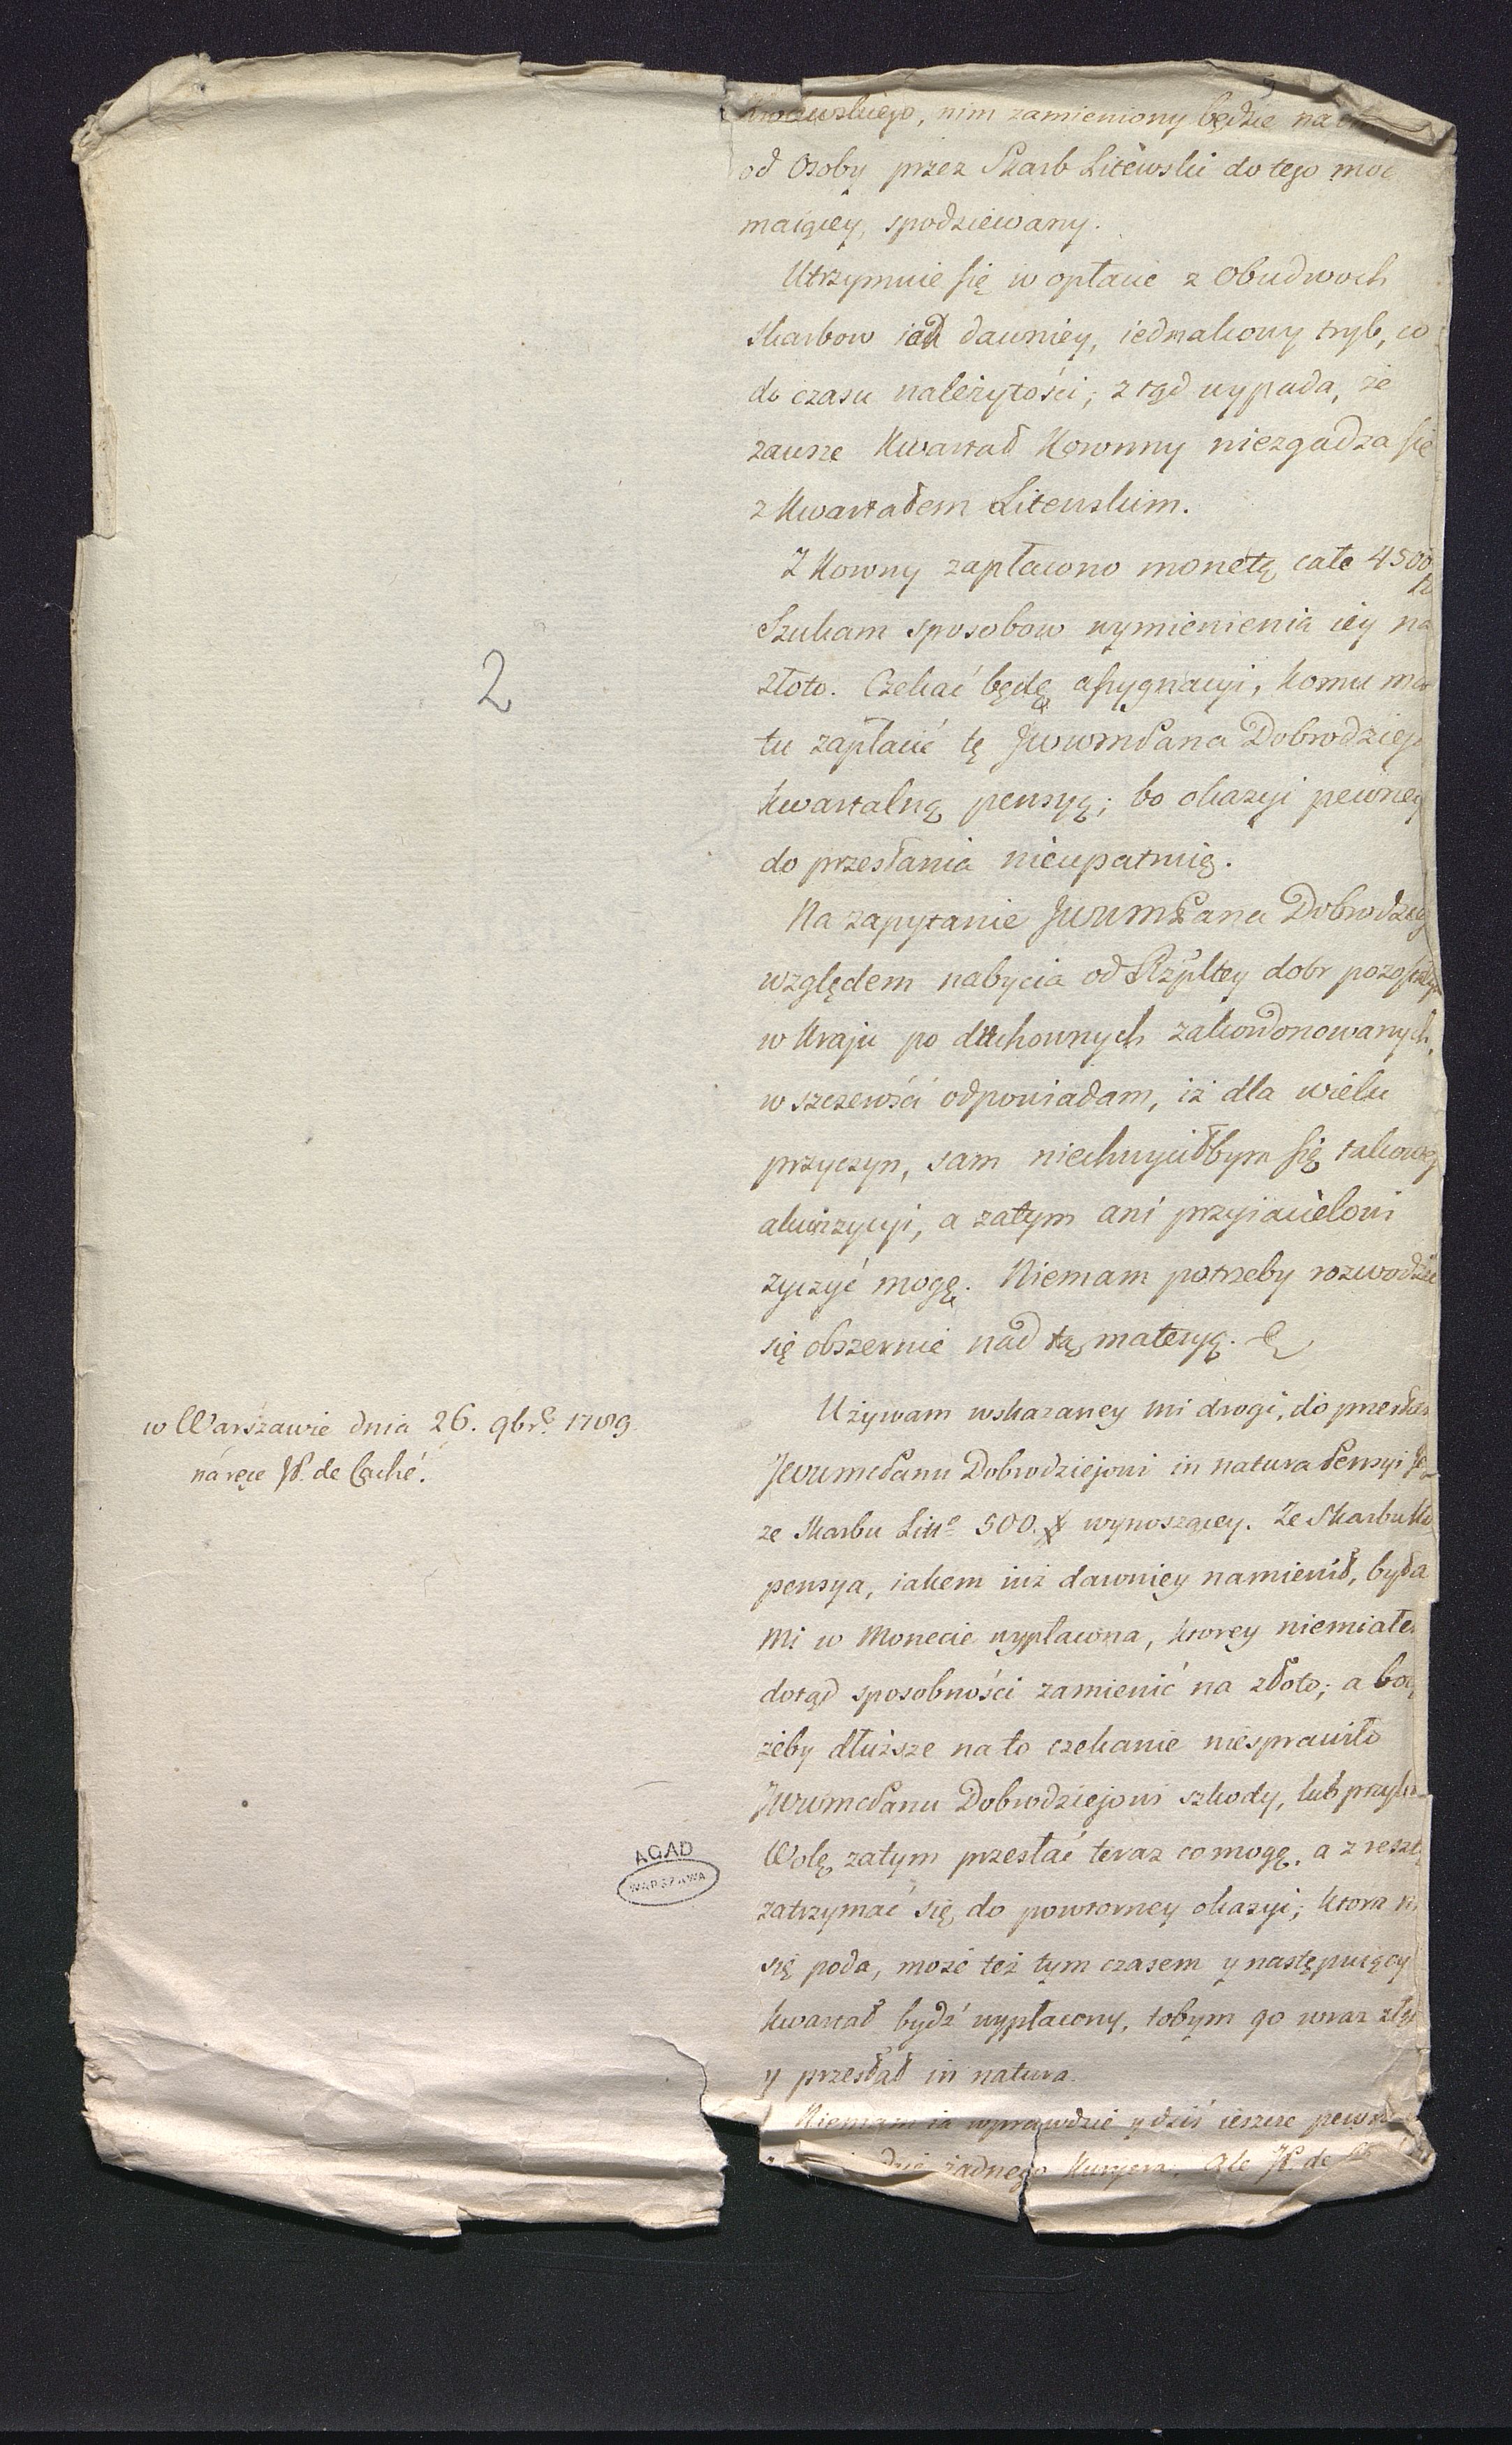 nim zamieniony będzie na
od Osoby przez Skarb Litewski do tego moc
maiącey, spodziewany.
Utrzymuie się w opłacie z obudwoch
Skarbow iak dawniey, iednakowy tryb, co
do czasu należytości; z tąd wypada, że
zawsze Kwartał Koronny niezgadza się
z Kwartałem Litewskim.
Z Korony zapłacono monetą całe 4500
Szukam sposobow wymienienia iey na
złoto. Czekać będę assygnacyi, komu ma
tu zapłacić tę JWWMPana Dobrodzieja
kwartalną pensyą; bo okazyi pewney
do przesłania nieupatruię.
Na zapytanie JWWMPana Dobrodzieja
względem nabycia od Rzpltey dobr
w Kraju po duchownych zakordonowanych,
w szczerości odpowiadam, iż dla wielu
przyczyn, sam niechwyciłbym się takowey
akwizycyi, a zatym ani przyiacielowi
życzyć mogę. Niemam potrzeby rozwodzić
się obszernie nad tą materyą.
2
w Warszawie dnia 26. 9br. 1789
na ręce JP. de Caché.
Używam wskazaney mi drogi, do
JWWMPanu Dobrodziejowi in natura Pensyi
ze Skarbu Litt. 500. # wynoszącey. Ze Skarbu
pensya, iakem iuż dawniey namienił, była
mi w Monecie wypłacona, ktorey niemiałem
dotąd sposobności zamienić na złoto; a
żeby dłuższe na to czekanie niesprawiło
JWWMPanu Dobrodziejowi szkody, lub
Wolę zatym przesłać teraz co mogę, a z resztą
zatrzymać się do powtorney okazyi; ktora
się poda, może też tym czasem y następuiący
kwartał bydź wypłacony, tobym go wraz
y przesłał in natura.
Niemam ia wprawdzie y dziś ieszcze
żadnego Kuryera. Ale JP. de
AGAD
WARSZAWA